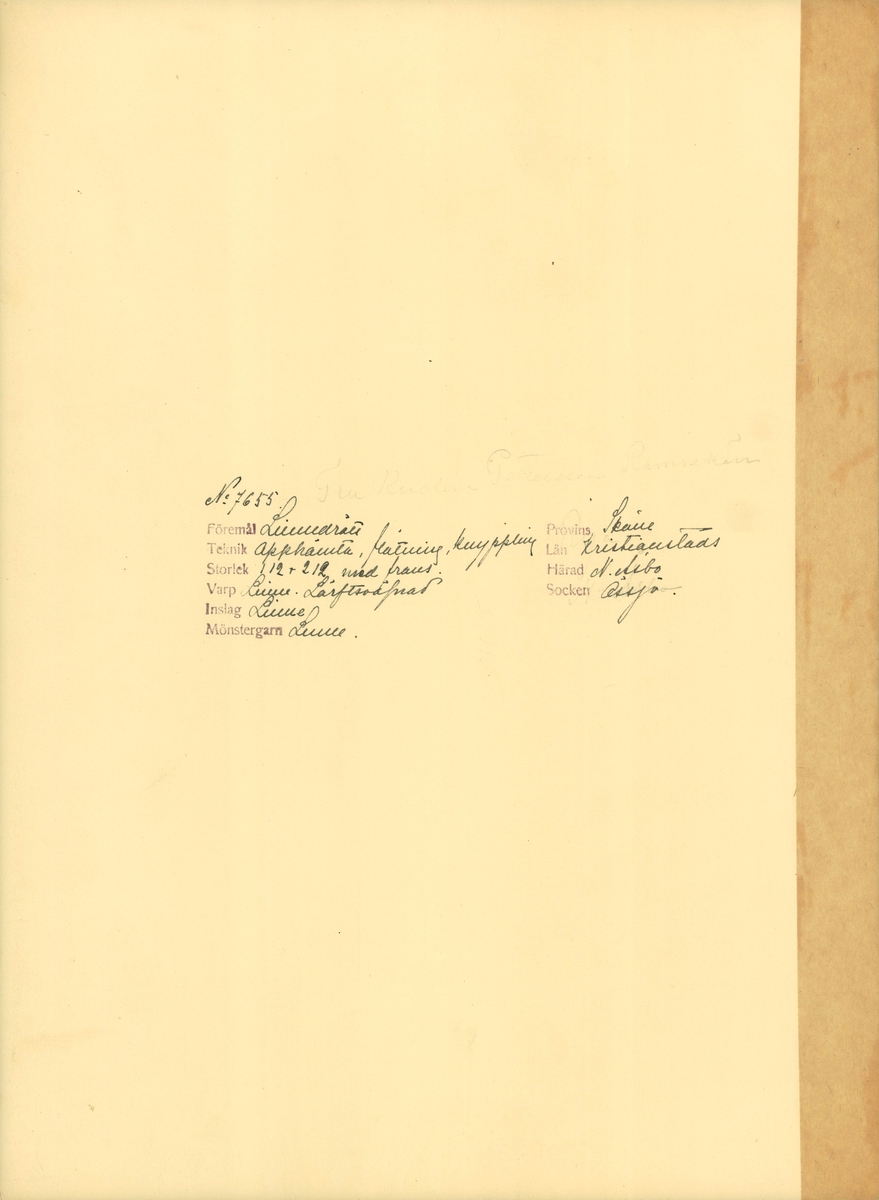 Fru
No 7655.
Föremål Linnedrätt
Teknik Opphämta, flätning, knyppling
Storlek 112 + 212 med frans.
Varp Linne. Lärftsväfnad
Inslag Linne
Mönstergarn Linne.
Provins, Skåne
Län Kristianstads
Härad N. Åsbo
Socken Össjö.